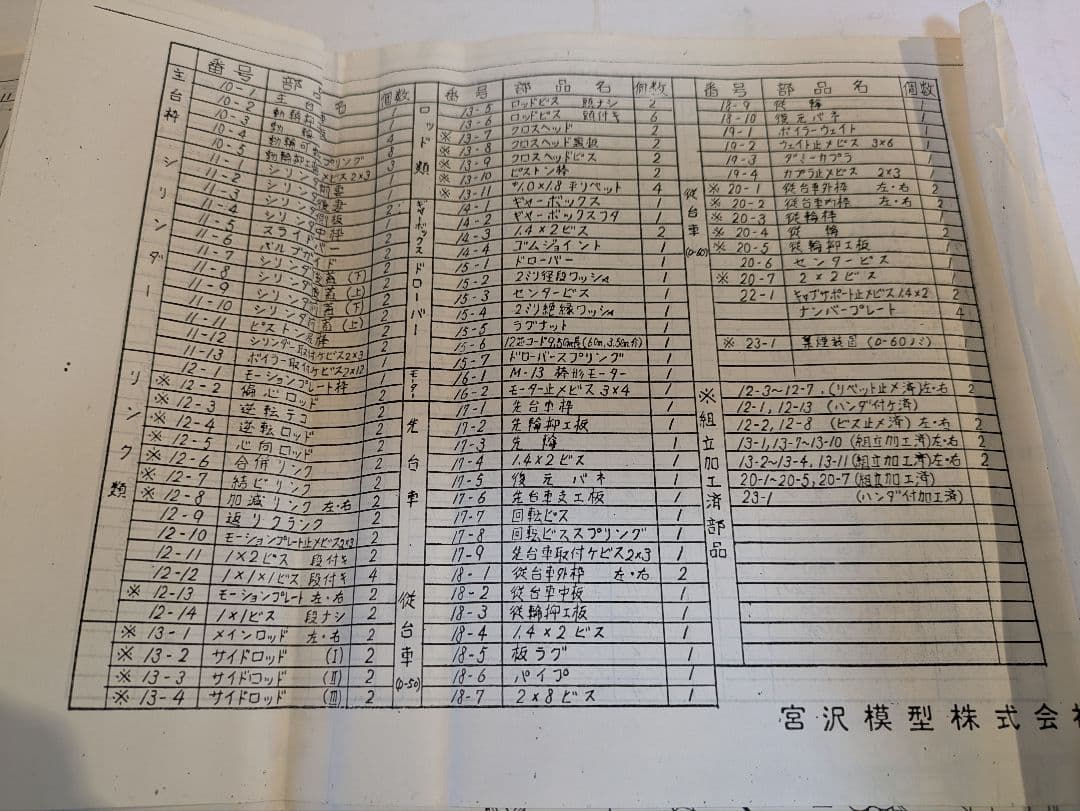 番号 部品名 個数
主台枠
10-1
10-2
10-3
10-4
10-5
シリンダー
11-1
11-2 シリンダ
11-3 シリンダ
11-4 シリンダ
11-5 スライドバー 2
11-6 バルブガイド 2
11-7 シリンダ 蓋(下) 2
11-8 シリンダ 蓋(上) 2
11-9 シリンダ 蓋(下) 2
11-10 蓋(上) 2
11-11 ピストン
11-12 シリンダー取付ケビス2×3
11-13 ボイラー取付ケビス2×12
リンク類
12-1 モーションプレート枠 1
※ 12-2 偏心ロッド 2
※ 12-3 逆転テコ 2
※ 12-4 逆転ロッド 2
※ 12-5 心向ロッド 2
※ 12-6 合併リンク 2
※ 12-7 結ビリンク 2
※ 12-8 加減リンク 左・右 2
12-9 返リクランク 2
12-10 モーションプレート止メビス2×3 2
12-11 1×2ビス 段付キ 2
12-12 1×1×1ビス 段付キ 4
※ 12-13 モーションプレート 左・右 2
12-14 1×1ビス 段ナシ 2
ロッド類
※ 13-1 メインロッド 左・右 2
※ 13-2 サイドロッド (I) 2
※ 13-3 サイドロッド (II) 2
※ 13-4 サイドロッド (III) 2
番号 部品名 個数
13-5 ロッドビス 段ナシ 2
13-6 ロッドビス 頭付キ 6
※ 13-7 クロスヘッド 2
※ 13-8 クロスヘッド裏板 2
※ 13-9 クロスヘッドビス 2
※ 13-10 ピストン棒 2
※ 13-11 φ1.0×1.8 平リベット 4
ギャボックス
14-1 ギャーボックス 1
14-2 ギャーボックスフタ 1
14-3 1.4×2ビス 2
14-4 ゴムジョイント 1
ドローバー
15-1 ドローバー 1
15-2 2ミリ径段ワッシャ 1
15-3 センタービス 1
15-4 2ミリ絶縁ワッシャ 1
15-5 ラグナット 1
15-6 1
15-7 ドローバースプリング 1
モーター
16-1 M-13 棒形モーター 1
16-2 モーター止メビス 3×4 1
先台車
17-1 先台車枠 1
17-2 先輪抑エ板 1
17-3 先輪 1
17-4 1.4×2ビス 1
17-5 復元バネ 1
17-6 先台車支エ板 1
17-7 回転ビス 1
17-8 回転ビススプリング 1
17-9 先台車取付ケビス2×3 1
従台車 (D-50)
18-1 従台車外枠 左・右 2
18-2 従台車中板 1
18-3 従輪抑エ板 1
18-4 1.4×2ビス 1
18-5 板ラグ 1
18-6 パイプ 1
18-7 2×8ビス 1
番号 部品名 個数
18-9 従輪 1
18-10 復元バネ 1
19-1 ボイラーウェイト 1
19-2 ウェイト止メビス 3×6 1
19-3 ダミーカプラ 1
19-4 カプラ止メビス 2×3 1
従台車 (D-60)
※ 20-1 従台車外枠 左・右 2
※ 20-2 従台車内枠 左・右 2
※ 20-3 従輪枠 1
※ 20-4 従輪 2
※ 20-5 従輪抑エ板 1
20-6 センタービス 1
※ 20-7 2×2ビス 1
22-1 キャブサポート止メビス1.4×2 2
ナンバープレート 4
※ 23-1 (D-60ノミ) 1
※組立加工済部品
12-3~12-7.(リベット止メ済)左・右 2
12-1, 12-13 (ハンダ付ケ済)
12-2, 12-8 (ビス止メ済) 左・右 2
13-1, 13-7~13-10(組立加工済)左・右 2
13-2~13-4, 13-11(組立加工済)左・右 2
20-1~20-5, 20-7(組立加工済)
23-1 (ハンダ付加工済)
宮沢模型株式会